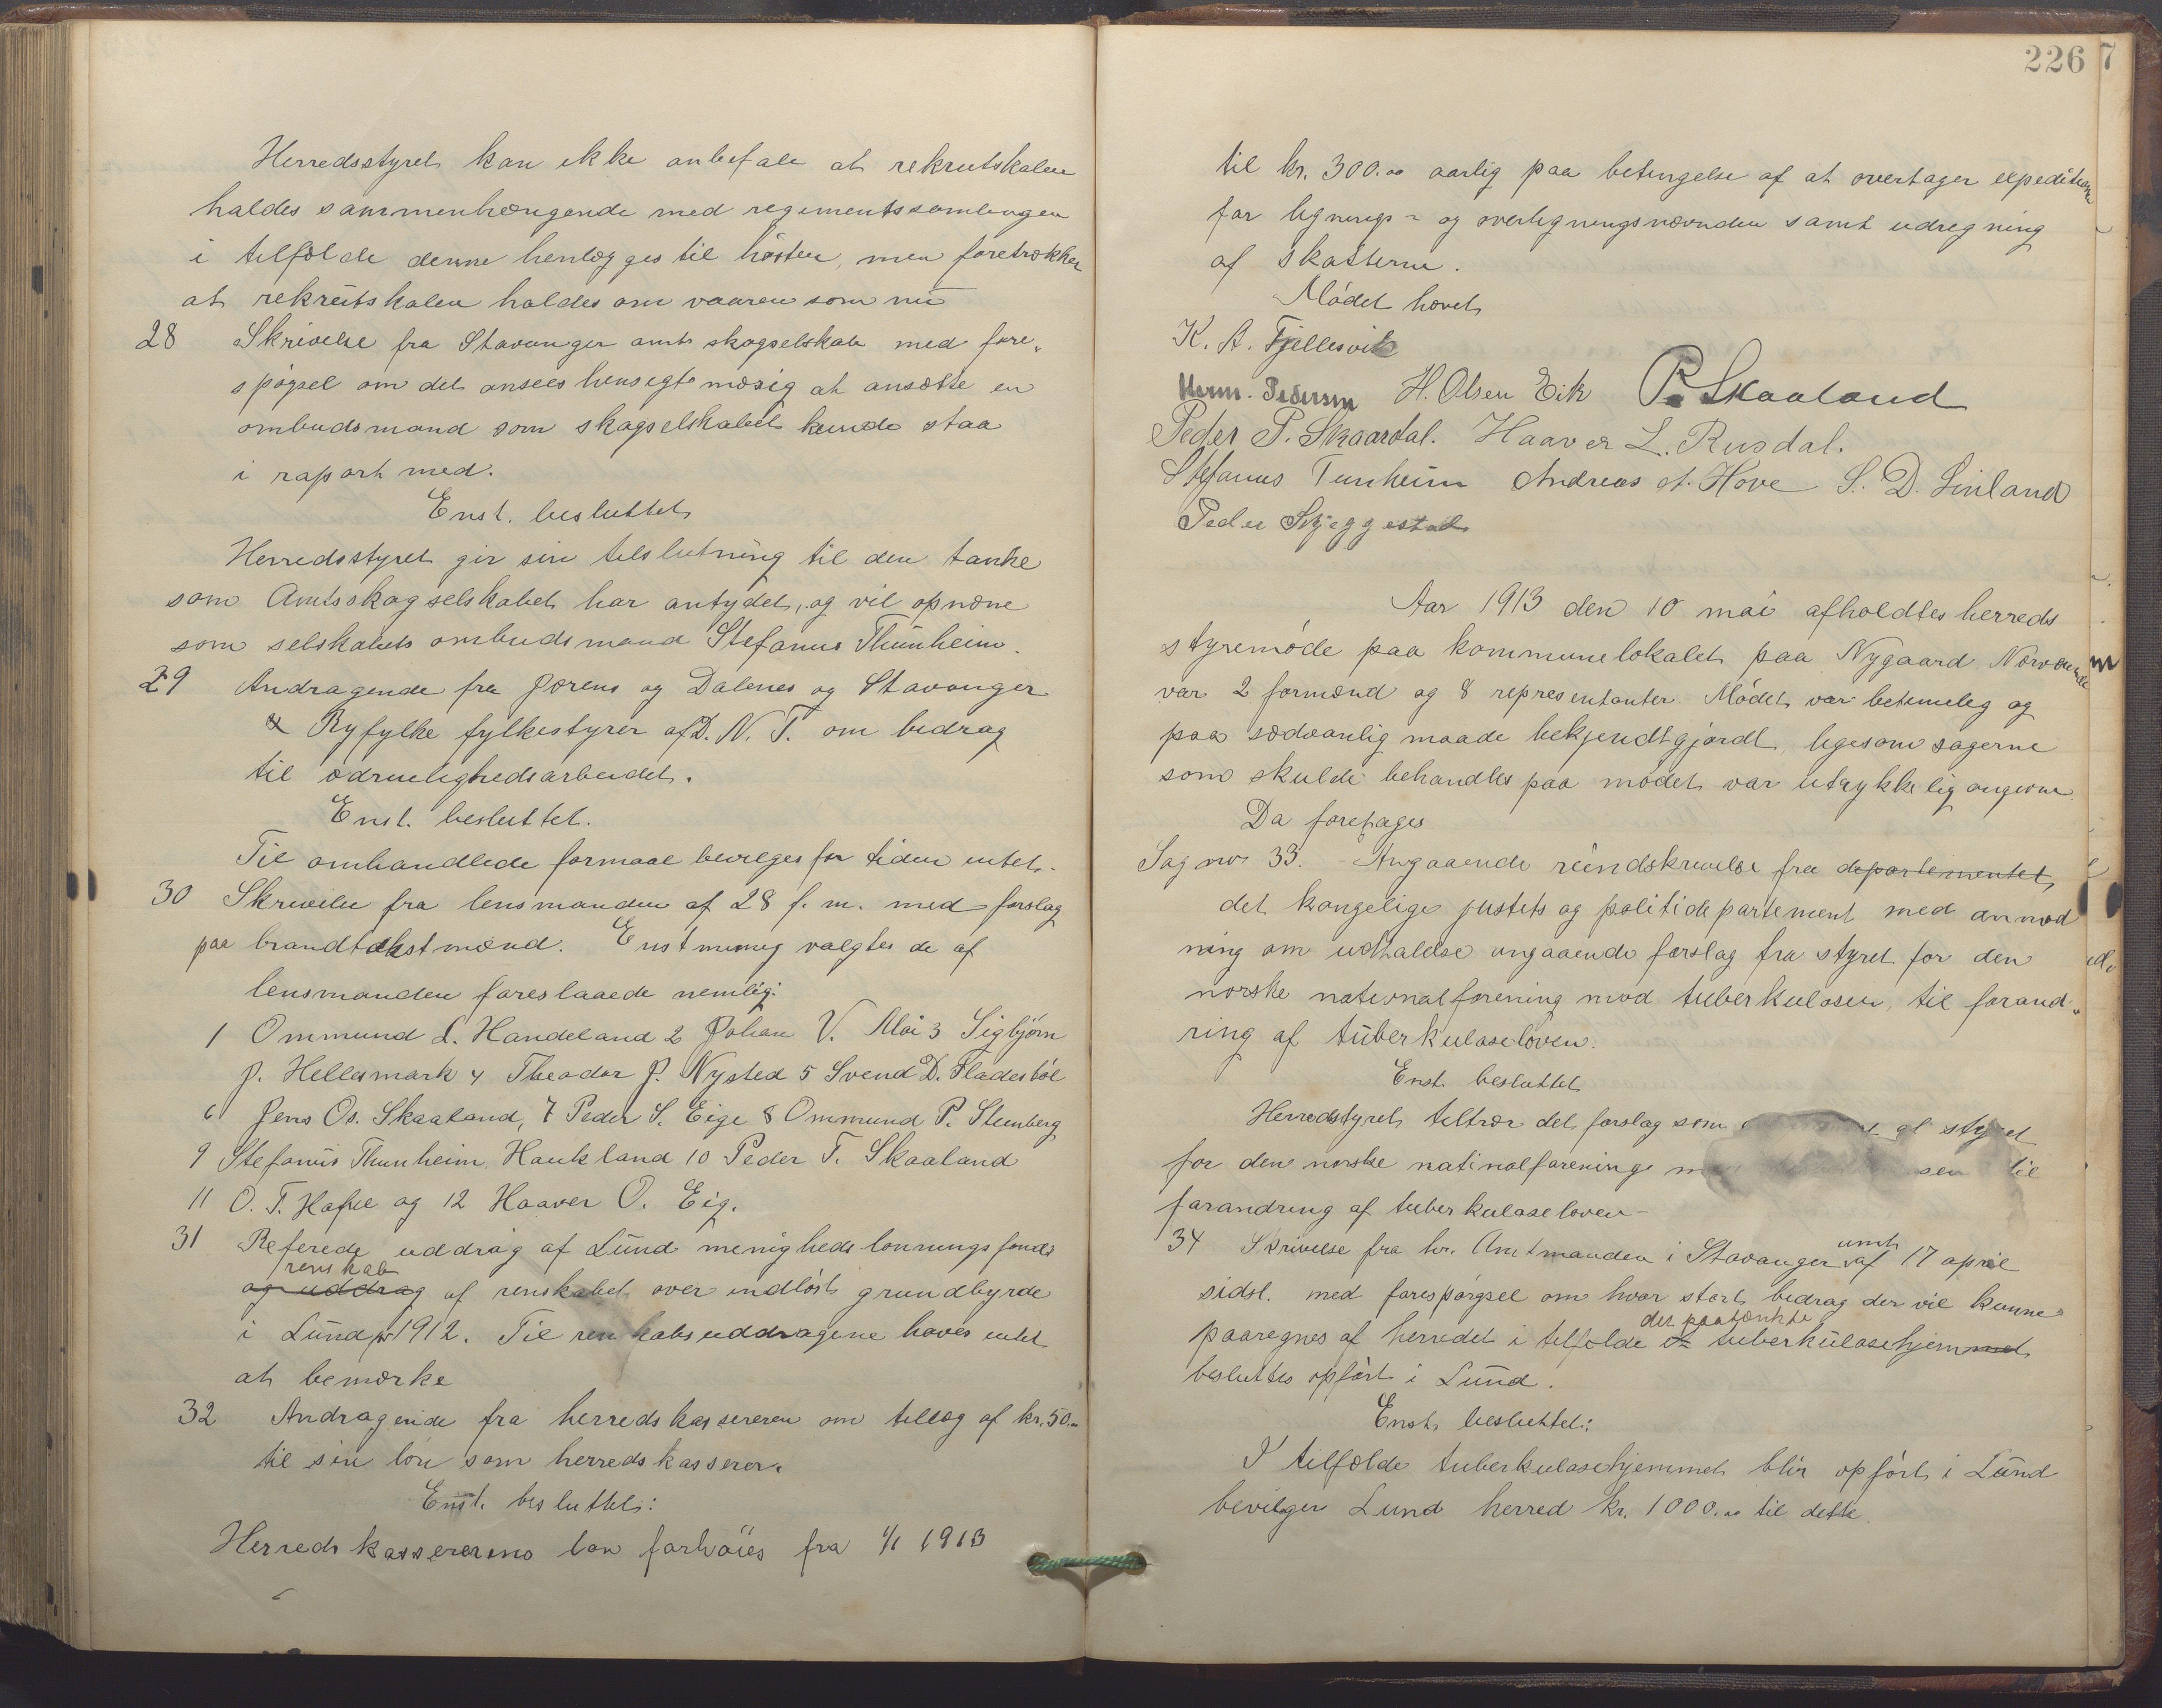 Herredsstyret kan ikke anbefale at rekrutskolen
holdes sammenhængende med regimentssamlingen
i tilfælde denne henlægges til hösten, men foretrækker
at rekrutskolen holdes om vaaren som nu
28 Skrivelse fra Stavanger amts skogselskab med fore-
spögsel om det ansees hensegtsmæsig at ansætte en
ombudsmand som skogselskabet kunde staa
i raport med.
Enst. besluttet
Herredsstyret gir sin tilslutning til den tanke
som Amtsskogselskabet har antydet, og vil opnæne
som selskabets ombudsmand Stefanus Thunheim.
29 Andragende fra Jærens og Dalenes og Stavanger
& Ryfylke fylkestyrer af D. N. T. om bedrag
til ædruelighedsarbeidet.
Enst. besluttet.
Til omhandlede formaal bevilges for tiden intet.
30 Skrivelse fra lensmanden af 28 f. m. med forslag
paa brandtakstmænd. Enstemmig valgtes de af
lensmanden foreslaaede nemlig:
1 Ommund L. Handeland 2 Johan V. Moi 3 Sigbjörn
J. Hellesmark 4 Theodor J. Nysted 5 Svend D. Fladesböl
6 Jens Os. Skaaland, 7 Peder S. Eige 8 Ommund P. Steenberg
9 Stefanus Thunheim, Haukland 10 Peder T. Skaaland
11 O. T. Hafie og 12 Haaver O. Eig.
31 Referede uddrag af Lund menigheds lønnings fonds
renskab
og uddrag af renskabet over indlöst grundbyrde
i Lund pr 1912. Til renskabsuddragene haves intet
at bemærke
32 Andragende fra herredskassereren om tillæg af kr. 50.00
til sin lön som herredskasserer.
Enst. besluttet:
Herredskassererens løn forhöies fra 1/1 1913
226 7
til kr. 300.00 aarlig paa betingelse af at overtager expeditionen
for lignings- og overligningsnævnden samt udregning
af skatterne.
Mödet hævet
K. A. Fjellesvik
Herm. Pedersen H. Olsen Eik P. Skaaland
Peder P. Skaardal. Haaver L. Rusdal.
Stefanus Tunheim Andreas A. Hove S. D. Linland
Peder Skjeggestad
Aar 1913 den 10 mai afholdtes herreds
styremöde paa kommunelokalet paa Nygaard Nærværende
var 2 formænd og 8 representanter Mödet var betimelig og
paa sædvanlig maade bekjendtgjordt ligesom sagerne
som skulde behandles paa mödet var utrykkelig angivne.
Da foretages
Sag no 33. Angaaende rundskrivelse fra departementet,
det kongelige justits og politidepartement med anmod
ning om udtalelse angaaende forslag fra styret for den
norske nationalforening mod tuberkulosen, til forand-
ring af tuberkuloseloven.
Enst. besluttet
Herredstyret tiltrær det forslag som af styret
for den norske natinalforening sen til
forandring af tuberkuloseloven
34 Skrivelse fra hr. Amtmanden i Stavanger amt af 17 april
sidst. med forespörgsel om hvor stort bedrag der vil kunne
det paatænkte
paaregnes af herredet i tilfælde tuberkulosehjemmet
besluttes opfört i Lund.
Enst. besluttet:
I tilfælde tuberkulosehjemmet blir opfört i Lund
bevilger Lund herred kr. 1000.00 til dette.